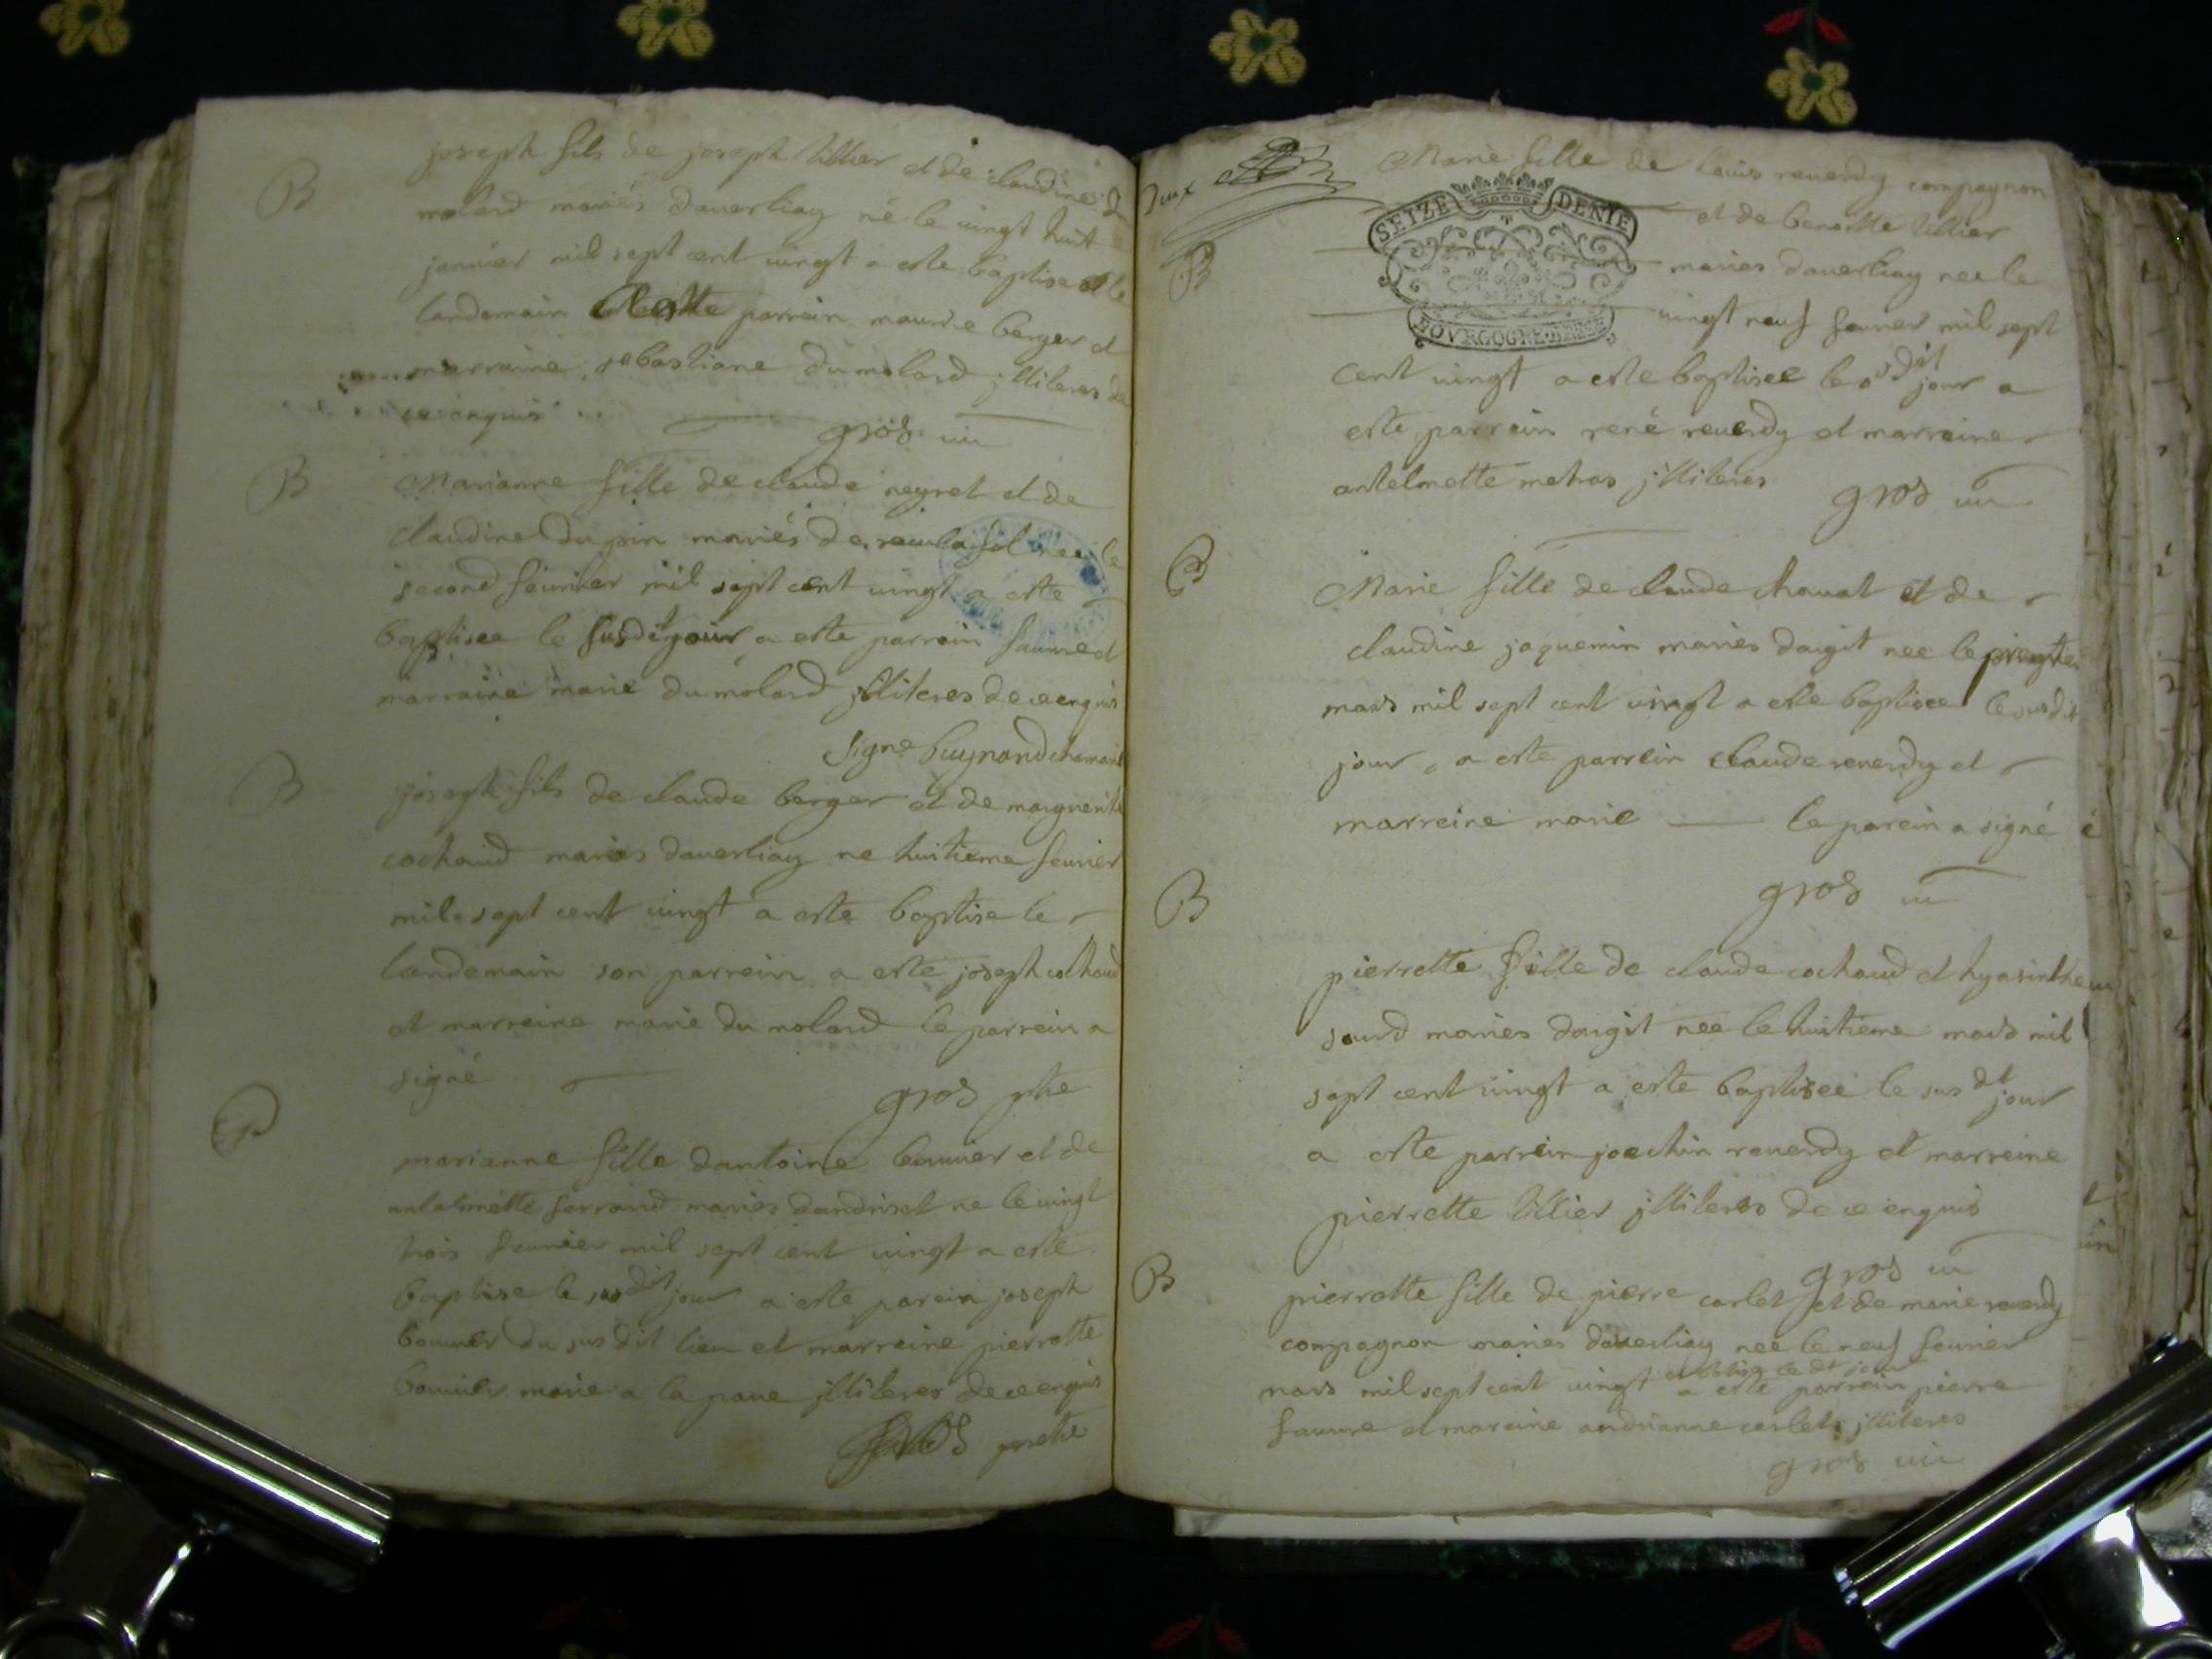 B
joseph fils de joseph tillier et de claudine du
molard mariés daverliay né le vingt huit
janvier mil sept cent vingt a este baptise le
landemain a este parrein maurice berger et
marraine sebastiane du molard jlliteres de
ce enquis
gros
B
Marianne fille de claude neyret et de
claudine dupin mariés de née le
second fevrier mil sept cent vingt a este
baptisee le susdit jour a este parrein faivre et
marraine marie du molard jlliteres de ce enquis
signe
B
joseph fils de claude berger et de marguerite
cochaud maries daverliay ne huitieme fevrier
mil sept cent vingt a este baptise le
landemain son parrein a este joseph cochaud
et marreine marie du molard le parrein a
signé
gros ptre
marianne fille dantoine bouvier et de
antelmette ferrand maries dandriset ne le vingt
trois fevrier mil sept cent vingt a este
baptise le susdit jour a este parein joseph
bouvier du susdit lieu et marreine pierrette
bouvier marie a la pave jlliteres de ce enquis
gros pretre
Deux
SEIZE DENIE
BOVRGOGNE BRESSE
B
Marie fille de louis reverdy compagnon
et de benoitte tillier
maries daverliay nee le
vingt neuf fevrier mil sept
cent vingt a este baptisee le susdit jour a
este parrein rené reverdy et marreine
antelmette metras jlliteres
gros
B
Marie fille de claude chavat et de
claudine jaquemin maries daigit nee le
mars mil sept cent vingt a este baptisee le susdit
jour, a este parrein claude reverdy et
marreine marie le parein a signé
gros
B
pierrette fille de claude cochaud et hyasinthe
sourd maries daigit née le huitieme mars mil
sept cent vingt a este baptisee le susdt jour
a este parrein joachin reverdy et marreine
pierrette tillier jlliteres de ce enquis
gros
B
pierrette fille de pierre carlet et de marie reverdy
compagnon maries daverliay née le neuf fevrier
mars mil sept cent vingt a este parrein pierre
faivre et mareine andrianne carlet jlliteres
gros